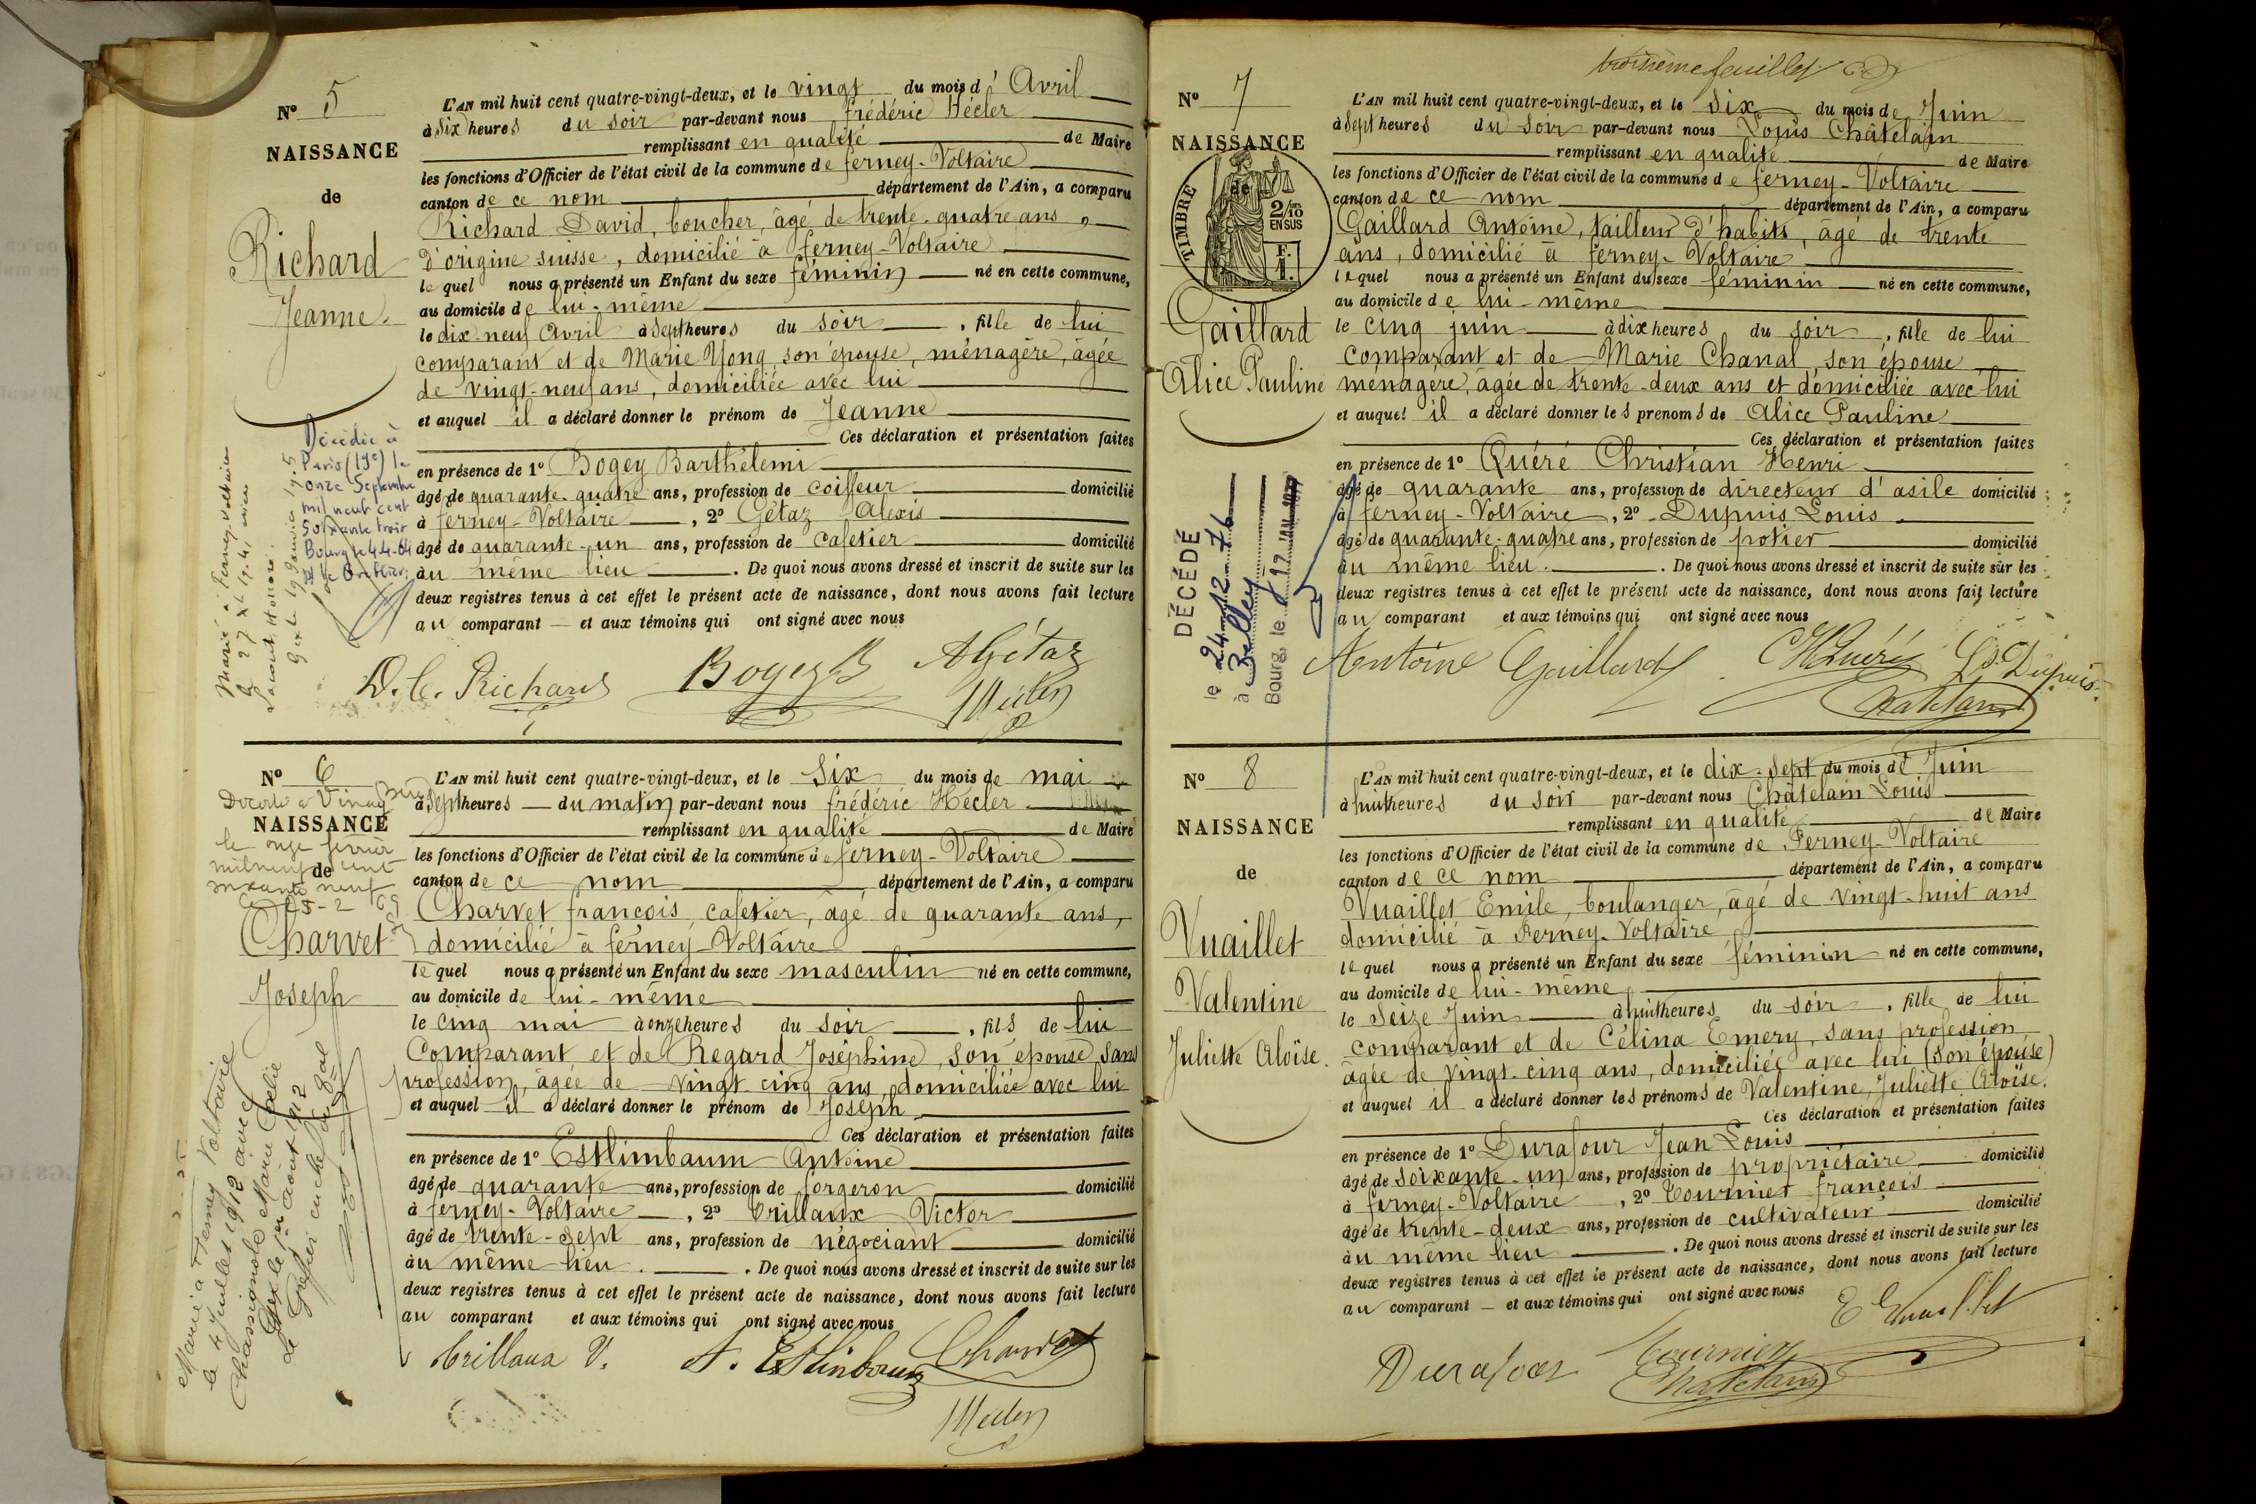 N° 5
NAISSANCE
de
Richard
Jeanne.
L'AN mil huit cent quatre-vingt-deux, et le vingt du mois d'Avril
à six heures du soir par-devant nous frédéric Hécler
remplissant en qualité de Maire
les fonctions d'Officier de l'état civil de la commune de ferney-Voltaire
canton de ce nom département de l'Ain, a comparu
Richard David, boucher, âgé de trente-quatre ans,
d'origine suisse, domicilié à ferney-Voltaire
lequel nous a présenté un Enfant du sexe féminin né en cette commune,
au domicile de lui-même
le dix-neuf Avril à sept heures du soir, fille de lui
comparant et de Marie Yong, son épouse, ménagère, âgée
de vingt-neuf ans, domiciliée avec lui
et auquel il a déclaré donner le prénom de Jeanne
Ces déclaration et présentation faites
en présence de 1° Bogey Barthélemi
âgé de quarante-quatre ans, profession de coiffeur domicilié
à ferney-Voltaire, 2° Gétaz Alexis
âgé de quarante-un ans, profession de cafetier domicilié
au même lieu. De quoi nous avons dressé et inscrit de suite sur les
deux registres tenus à cet effet le présent acte de naissance, dont nous avons fait lecture
au comparant et aux témoins qui ont signé avec nous
Décédée à
Paris (19e) le
onze Septembre
mil neuf cent
soixante trois
Bourg le 4-4-64
Marié à Ferney-Voltaire
D. C. Richard Bogey B AGétaz
Hécler
N° 6
NAISSANCE
de
Charvet
Joseph
Décédé à Vinay
le onze février
mil neuf cent
soixante neuf
L'AN mil huit cent quatre-vingt-deux, et le six du mois de mai
à sept heures du matin par-devant nous frédéric Hécler
remplissant en qualité de Maire
les fonctions d'Officier de l'état civil de la commune de ferney-Voltaire
canton de ce nom département de l'Ain, a comparu
Charvet françois, cafetier, âgé de quarante ans,
domicilié à ferney-Voltaire
lequel nous a présenté un Enfant du sexe masculin né en cette commune,
au domicile de lui-même
le cinq mai à onze heures du soir, fils de lui
Comparant et de Regard Joséphine, son épouse, sans
profession, âgée de vingt cinq ans, domiciliée avec lui
et auquel il a déclaré donner le prénom de Joseph
Ces déclaration et présentation faites
en présence de 1° Estlimbaum Antoine
âgé de quarante ans, profession de forgeron domicilié
à ferney-Voltaire, 2° Trillaux Victor
âgé de trente-sept ans, profession de négociant domicilié
au même lieu. De quoi nous avons dressé et inscrit de suite sur les
deux registres tenus à cet effet le présent acte de naissance, dont nous avons fait lecture
au comparant et aux témoins qui ont signé avec nous
Marié à Ferney Voltaire
le 4 Juillet 1912 avec
Chassignole Marie Coelie
Gex le 1er août 1912
Le Greffier en chef
Trillaux V. A. Estlimbaum Charvet
Hécler
troisième feuillet
N° 7
NAISSANCE
de
TIMBRE
2/10
EN SUS
F.
1.
Gaillard
Alice Pauline
L'AN mil huit cent quatre-vingt-deux, et le six du mois de Juin
à sept heures du soir par-devant nous Louis Châtelain
remplissant en qualité de Maire
les fonctions d'Officier de l'état civil de la commune de ferney-Voltaire
canton de ce nom département de l'Ain, a comparu
Gaillard Antoine, tailleur d'habits, âgé de trente
ans, domicilié à ferney-Voltaire
lequel nous a présenté un Enfant du sexe féminin né en cette commune,
au domicile de lui-même
le cinq juin à dix heures du soir, fille de lui
comparant et de Marie Chanal, son épouse,
ménagère, âgée de trente-deux ans et domiciliée avec lui
et auquel il a déclaré donner les prénoms de Alice Pauline
Ces déclaration et présentation faites
en présence de 1° Quéré Christian Henri
âgé de quarante ans, profession de directeur d'asile domicilié
à ferney-Voltaire, 2° Dupuis Louis
âgé de quarante-quatre ans, profession de potier domicilié
au même lieu. De quoi nous avons dressé et inscrit de suite sur les
deux registres tenus à cet effet le présent acte de naissance, dont nous avons fait lecture
au comparant et aux témoins qui ont signé avec nous
DÉCÉDÉ
le 24-12-76
à Belley
Bourg, le 17 JAN. 1977
Antoine Gaillard CHQuéré Ls Dupuis
Chatelain
N° 8
NAISSANCE
de
Vuaillet
Valentine
Juliette Aloïse.
L'AN mil huit cent quatre-vingt-deux, et le dix-sept du mois de Juin
à huit heures du soir par-devant nous Châtelain Louis
remplissant en qualité de Maire
les fonctions d'Officier de l'état civil de la commune de Ferney-Voltaire
canton de ce nom département de l'Ain, a comparu
Vuaillet Emile, boulanger, âgé de vingt-huit ans
domicilié à Ferney-Voltaire
lequel nous a présenté un Enfant du sexe féminin né en cette commune,
au domicile de lui-même
le seize Juin à huit heures du soir, fille de lui
comparant et de Célina Emery, sans profession
âgée de vingt-cinq ans, domiciliée avec lui (son épouse)
et auquel il a déclaré donner les prénoms de Valentine, Juliette Aloïse.
Ces déclaration et présentation faites
en présence de 1° Durafour Jean Louis
âgé de soixante-un ans, profession de propriétaire domicilié
à ferney-Voltaire, 2° Tournier françois
âgé de trente-deux ans, profession de cultivateur domicilié
au même lieu. De quoi nous avons dressé et inscrit de suite sur les
deux registres tenus à cet effet le présent acte de naissance, dont nous avons fait lecture
au comparant et aux témoins qui ont signé avec nous
E Vuaillet
Durafour Tournier
Chatelain